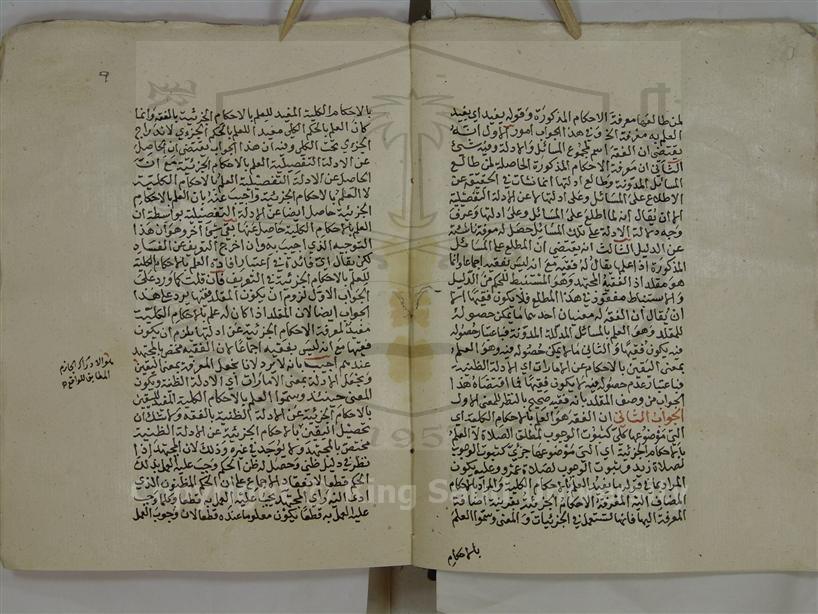 لمن طالعها معرفة الاحكام المذكورة وقوله يفيد اي يفيد
العلم به معرفة الخ وفي هذا الجواب امور الاول انه
يقتضي ان الفقه اسم لمجموع المسائل والادلة وفيه شيء
الثاني ان معرفة الاحكام المذكورة الحاصلة لمن طالع
المسائل المدونة وطالع ادلتها انما نشأت في الحقيقة عن
الاطلاع على المسائل وعلى ادلتها لا عن الادلة التفصيلية
الا ان يقال انه لما اطلع على المسائل وعلى ادلتها وعرف
وجه دلالة الادلة على تلك المسائل حصل له معرفة ناشئة
عن الدليل الثالث انه يقتضي ان المطلع على المسائل
المذكورة اذا علمها يقال له فقيه مع انه ليس بفقيه اجماعا وانما
هو مقلد اذ الفقيه المجتهد وهو المستنبط للحكم من الدليل
والاستنباط مفقود في هذا المطلع فلا يكون فقيها الا
ان يقال ان الفقه له معنيان احدهما ما يمكن حصوله
للمقلد وهو العلم بالمسائل المدللة المدونة فباعتبار حصوله
فيه يكون فقيها والثاني ما لا يمكن حصوله فيه وهو العلم
بمعنى اليقين بالاحكام عن الامارات اي الادلة الظنية
فباعتبار عدم حصوله فيه لا يكون فقيها فما اقتضاه هذا
الجواب من وصف المقلد بانه فقيه صحيح بالنظر للمعنى الاول
الجواب الثاني ان الفقه هو العلم بالاحكام الكلية اي
التي موضوعها كلي كثبوت الوجوب لمطلق الصلاة لا العلم
بالاحكام الجزئية اي التي موضوعها جزئي كثبوت الوجوب
لصلاة زيد وثبوت الوجوب لصلاة عمرو وعليه يكون
المراد بما في قولهما يفيد العلم بالاحكام الكلية والمراد بالاحكام
المضاف اليه المعرفة الاحكام الجزئية بقرينة اضافة
المعرفة اليها فانها تستعمل في الجزئيات والمعنى وسموا العلم
بالاحكام
٩
بالاحكام الكلية المفيد للعلم بالاحكام الجزئية بالفقه وانما
كان العلم بالحكم الكلي مفيدا للعلم بالحكم الجزئي لاندراج
الجزئي تحت الكلي وفيه ان هذا الجواب يقتضي ان الحاصل
عن الادلة التفصيلية العلم بالاحكام الجزئية مع ان
الحاصل عن الادلة التفصيلية العلم بالاحكام الكلية
لا العلم بالاحكام الجزئية واجيب عنه بان العلم بالاحكام
الجزئية حاصل ايضا عن الادلة التفصيلية بواسطة ان
العلم بالاحكام الكلية حاصل عنها بقي شيء آخر وهو ان هذا
التوجيه الذي اجيب به وان اخرج التعريف عن الفساد
لكن يقال اي فائدة في اعتبار افادة العلم بالاحكام الكلية
للعلم بالاحكام الجزئية في التعريف فان قلت كما ورد على
الجواب الاول لزوم ان يكون المقلد فقيها يرد على هذا
الجواب ايضا لان المقلد اذا كان له علم بالاحكام الكلية
مفيد لمعرفة الاحكام الجزئية عن ادلتها يلزم ان يكون
فقيها مع انه ليس بفقيه اجماعا لان الفقيه مختص بالمجتهد
عندهم اجيب بانه لا يرد لانا نجعل المعرفة بمعنى اليقين
ونجعل الادلة بمعنى الامارات اي الادلة الظنية ويكون
المعنى حينئذ وسموا العلم بالاحكام الكلية المفيد لليقين
بالاحكام الجزئية عن الادلة الظنية بالفقه ولا شك ان
تحصيل اليقين بالاحكام الجزئية عن الادلة الظنية
مختص بالمجتهد ولا يوجد في غيره وذلك لان المجتهد اذا
نظر في دليل ظني وحصل له ظن الحكم وجب عليه العمل بذلك
الحكم قطعا لانعقاد الاجماع على ان الحكم المظنون الذي
ادى اليه رأي المجتهد يجب عليه العمل به قطعا وكلما وجب
عليه العمل به قطعا يكون معلوما عنده قطعا لان وجوب العمل
هو الادراك الجازم
المطابق للواقع
Copyright © King Saud University
1957